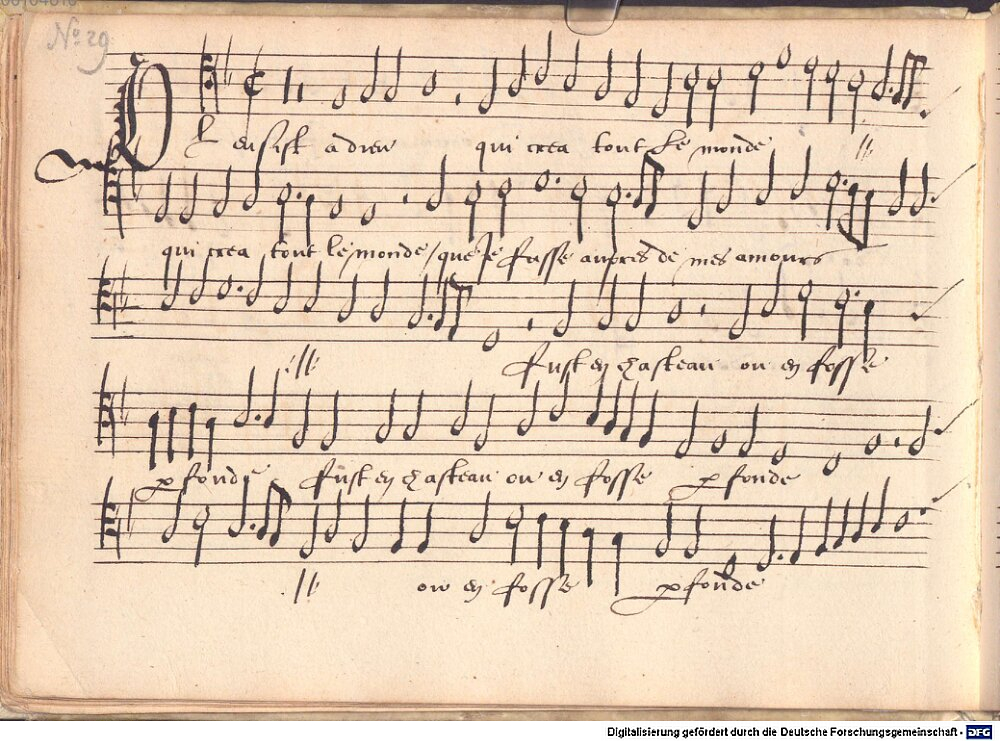 No 29
Pleusist a dieu qui crea tout le monde
qui crea tout le monde / que Je fusse aupres de mes amours
fust en chasteau ou en fosse
pfonde fust en chasteau ou en fosse pfonde
ou en fosse pfonde
Digitalisierung gefördert durch die Deutsche Forschungsgemeinschaft - DFG